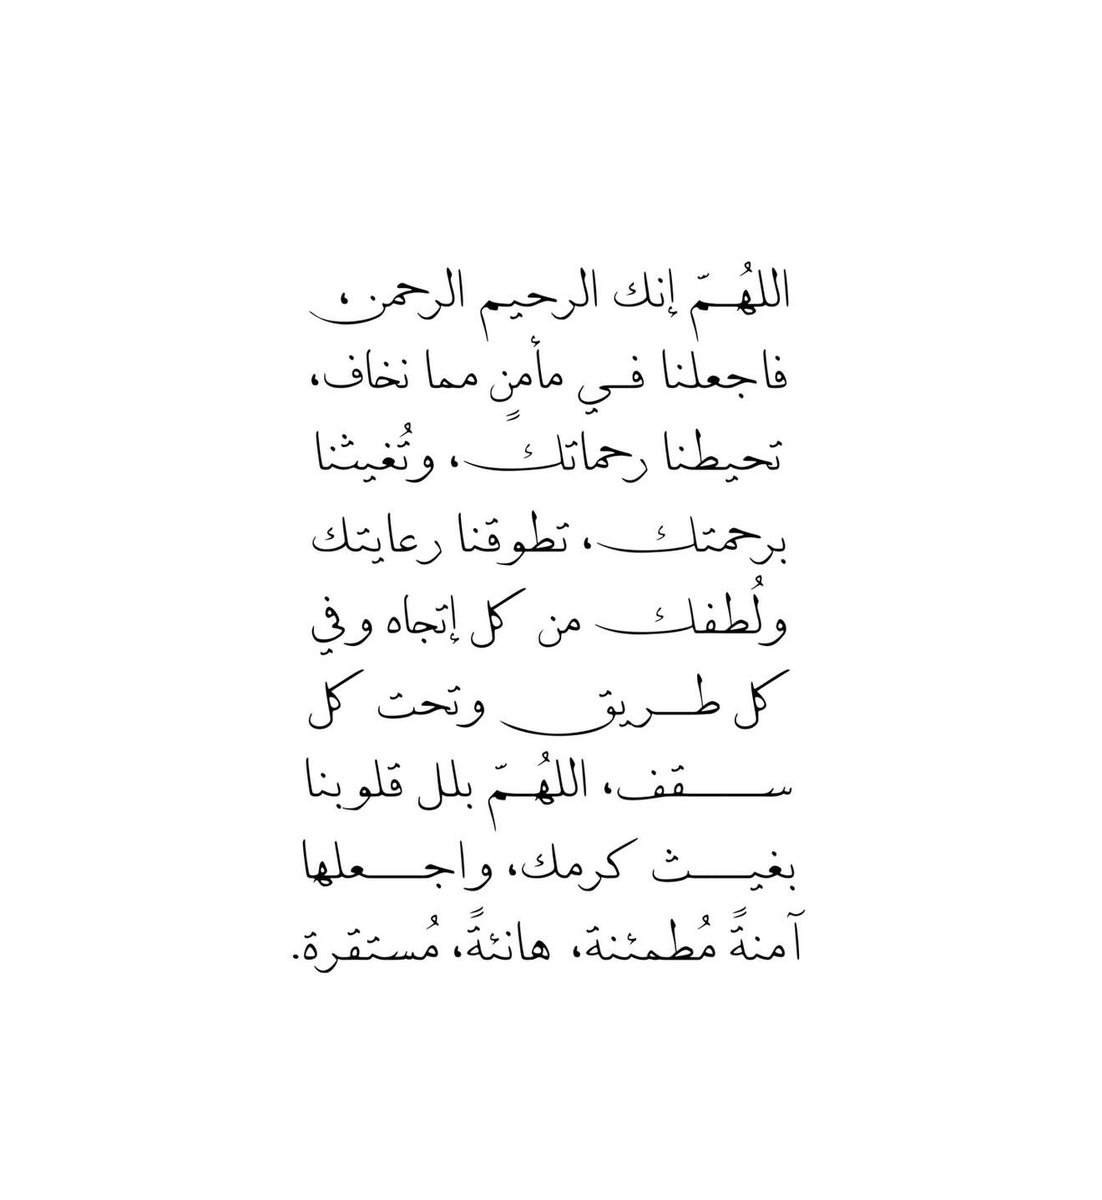 اللهُمّ إنك الرحيم الرحمن،
فاجعلنا في مأمنٍ مما نخاف،
تحيطنا رحماتك، وتُغيثنا
برحمتك، تطوقنا رعايتك
ولُطفك من كل إتجاه وفي
كل طريق وتحت كل
سقف، اللهُمّ بلل قلوبنا
بغيث كرمك، واجعلها
آمنةً مُطمئنة، هانئةً، مُستقرة.